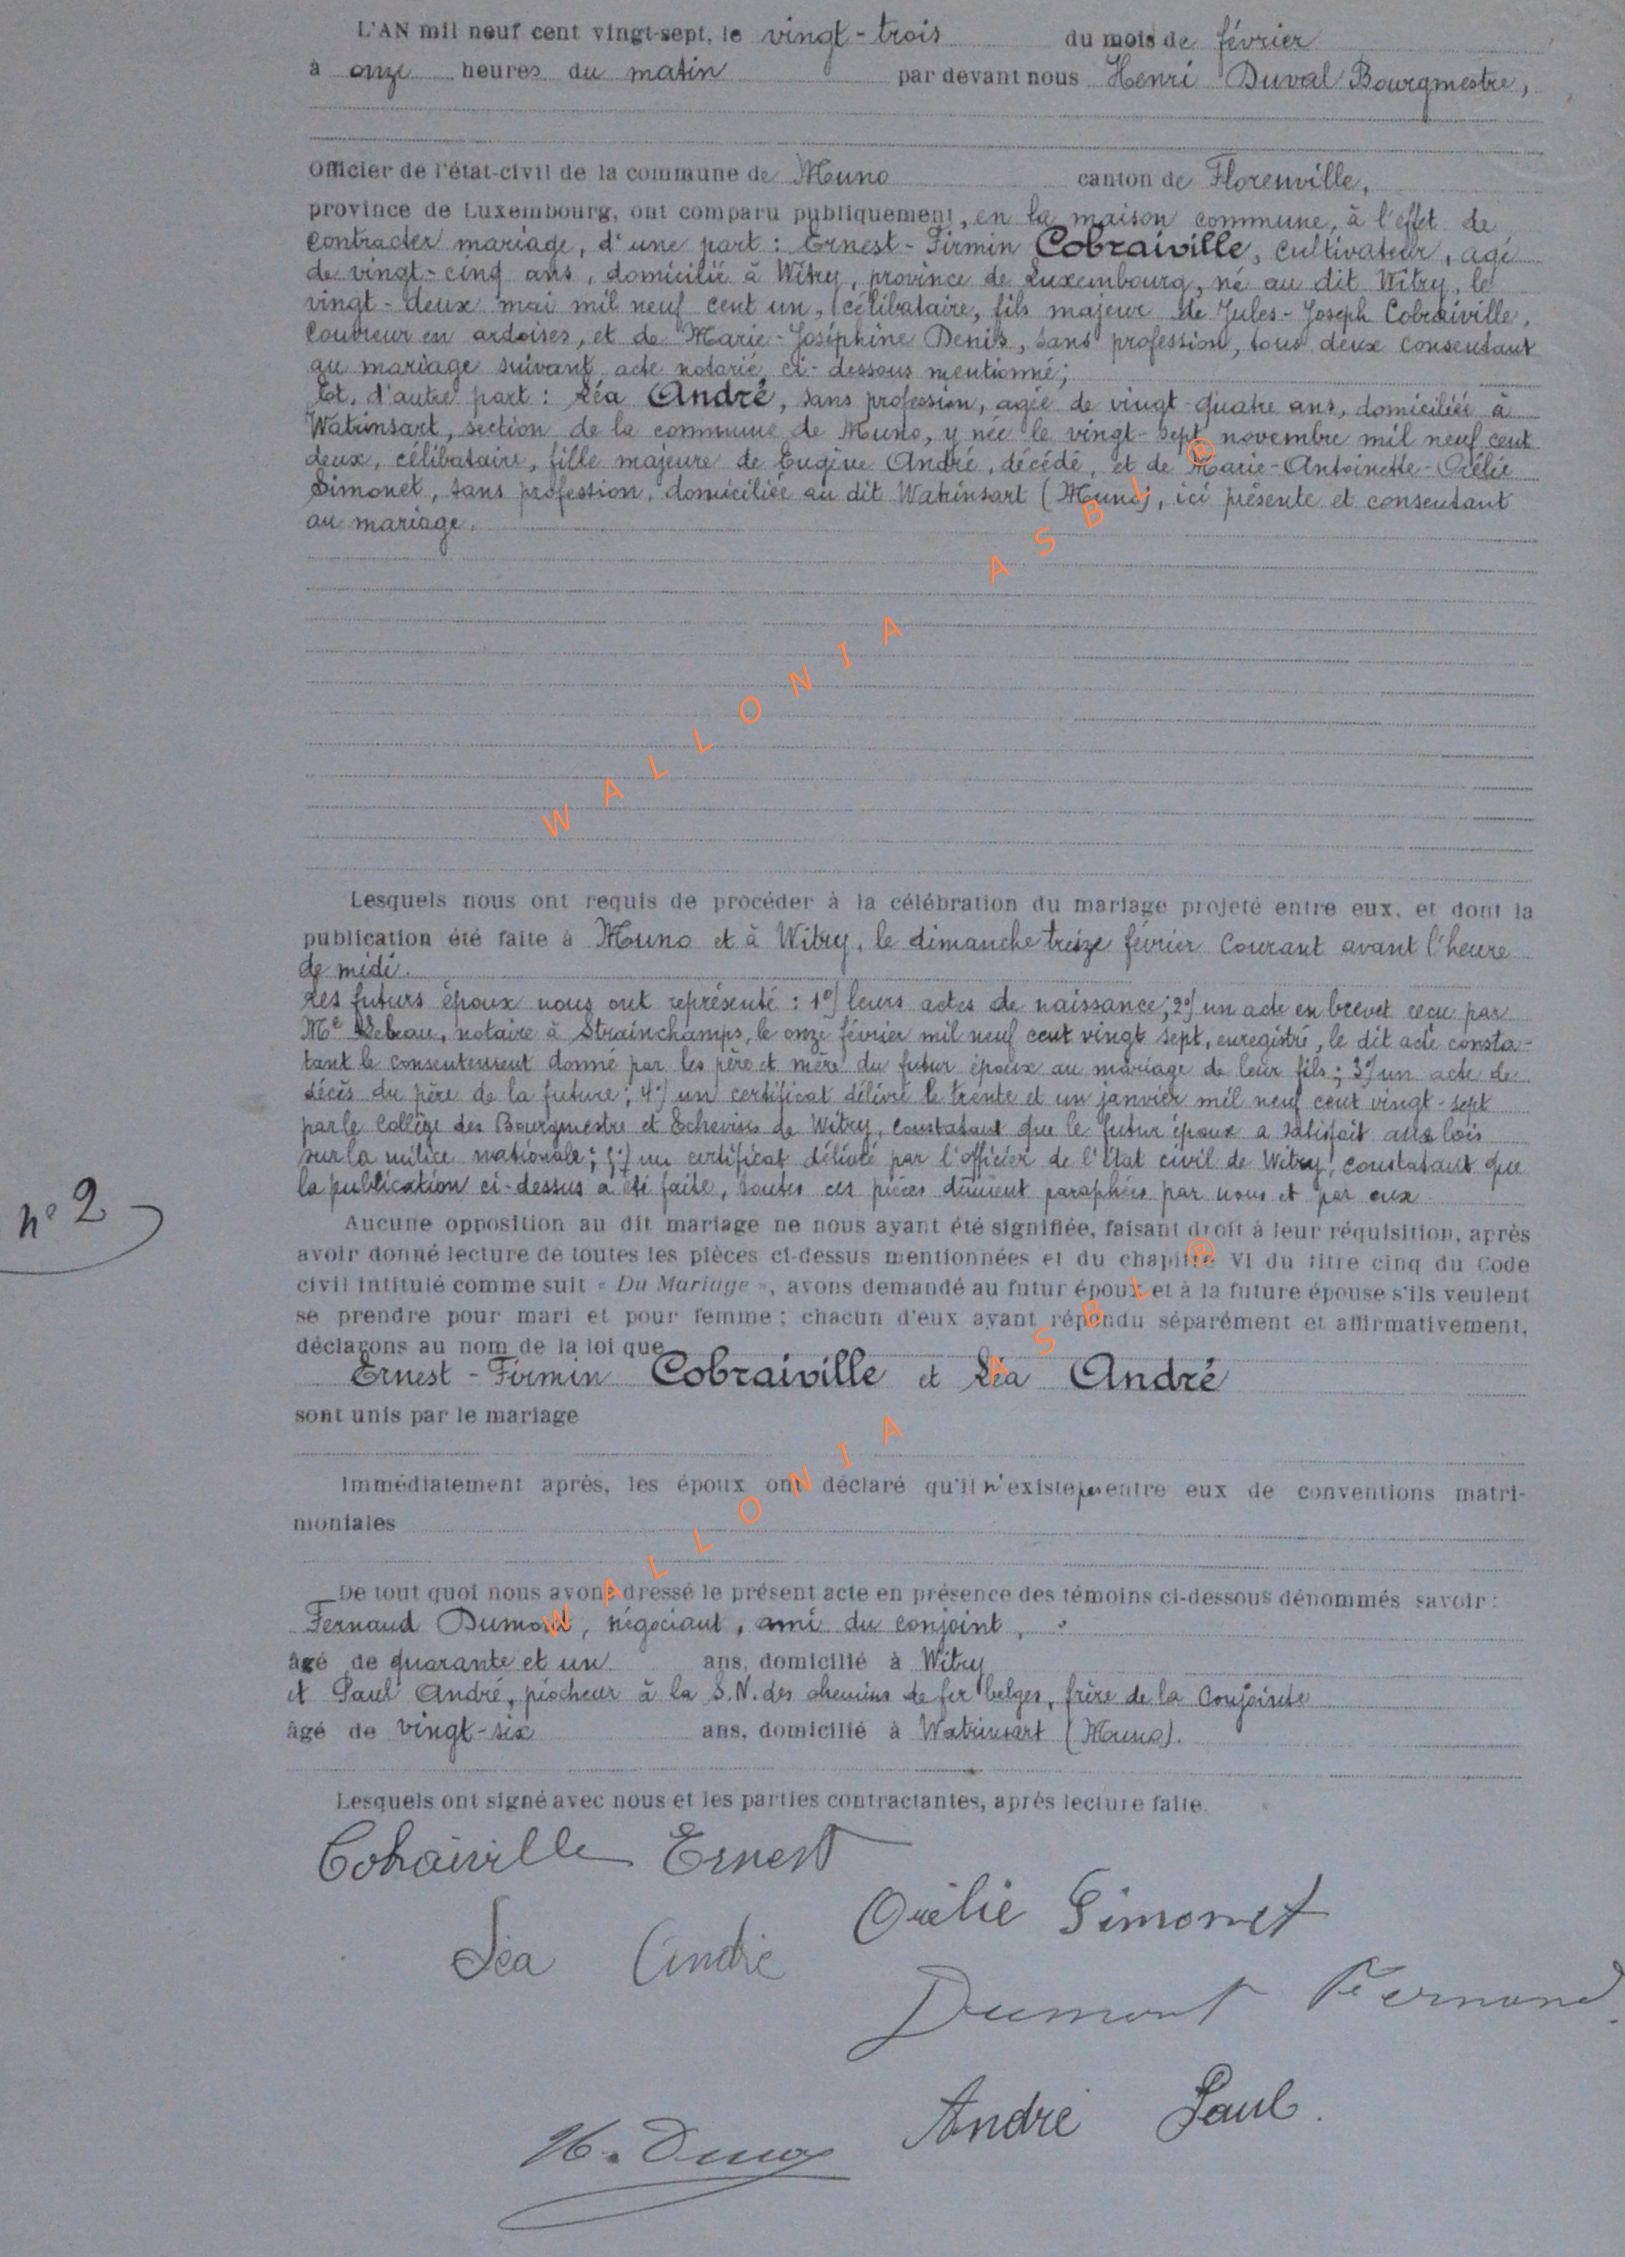 L'AN mil neuf cent vingt-sept, le vingt-trois du mois de février
à onze heures du matin par devant nous Henri Duval Bourgmestre,
Officier de l'état-civil de la commune de Muno canton de Florenville,
province de Luxembourg, ont comparu publiquement, en la maison commune, à l'effet de
contracter mariage, d'une part : Ernest-Firmin Cobraiville, cultivateur, agé
de vingt-cinq ans, domicilié à Witry, province de Luxembourg, né au dit Witry, le
vingt-deux mai mil neuf cent un, célibataire, fils majeur de Jules-Joseph Cobraiville,
couvreur en ardoises, et de Marie-Joséphine Denis, sans profession, tous deux consentant
au mariage suivant acte notarié ci-dessous mentionné;
Et, d'autre part : Léa André, sans profession, agée de vingt-quatre ans, domiciliée à
Watrinsart, section de la commune de Muno, y née le vingt-sept novembre mil neuf cent
deux, célibataire, fille majeure de Eugène André, décédé, et de Marie-Antoinette-Orélie
Simonet, sans profession, domiciliée au dit Watrinsart (Muno), ici présente et consentant
au mariage.
Lesquels nous ont requis de procéder à la célébration du mariage projeté entre eux, et dont la
publication été faite à Muno et à Witry, le dimanche treize février courant avant l'heure
de midi.
Les futurs époux nous ont représenté : 1°) leurs actes de naissance; 2°) un acte en brevet reçu par
Me Lebeau, notaire à Strainchamps, le onze février mil neuf cent vingt sept, enregistré, le dit acte consta-
tant le consentement donné par les père et mère du futur époux au mariage de leur fils; 3°) un acte de
décès du père de la future; 4°) un certificat délivré le trente et un janvier mil neuf cent vingt-sept
par le Collège des Bourgmestre et Echevins de Witry, constatant que le futur époux a satisfait aux lois
sur la milice nationale; 5°) un certificat délivré par l'officier de l'Etat civil de Witry, constatant que
la publication ci-dessus a été faite, toutes ces pièces dûment paraphées par nous et par eux
n° 2
Aucune opposition au dit mariage ne nous ayant été signifiée, faisant droit à leur réquisition, après
avoir donné lecture de toutes les pièces ci-dessus mentionnées et du chapitre VI du titre cinq du Code
civil intitulé comme suit « Du Mariage », avons demandé au futur époux et à la future épouse s'ils veulent
se prendre pour mari et pour femme ; chacun d'eux ayant répondu séparément et affirmativement,
déclarons au nom de la loi que
Ernest-Firmin Cobraiville et Léa André
sont unis par le mariage
Immédiatement après, les époux ont déclaré qu'il n'existe pas entre eux de conventions matri-
moniales
De tout quoi nous avons dressé le présent acte en présence des témoins ci-dessous dénommés savoir :
Fernand Dumont, négociant, ami du conjoint,
âgé de quarante et un ans, domicilié à Witry
et Paul André, piocheur à la S.N. des chemins de fer belges, frère de la conjointe
âgé de vingt-six ans, domicilié à Watrinsart (Muno).
Lesquels ont signé avec nous et les parties contractantes, après lecture faite.
Cobraiville Ernest
Orélie Simonet
Léa André
Dumont Fernand.
André Paul.
H. Duval
WALLONIA ASBL ®
WALLONIA ASBL ®